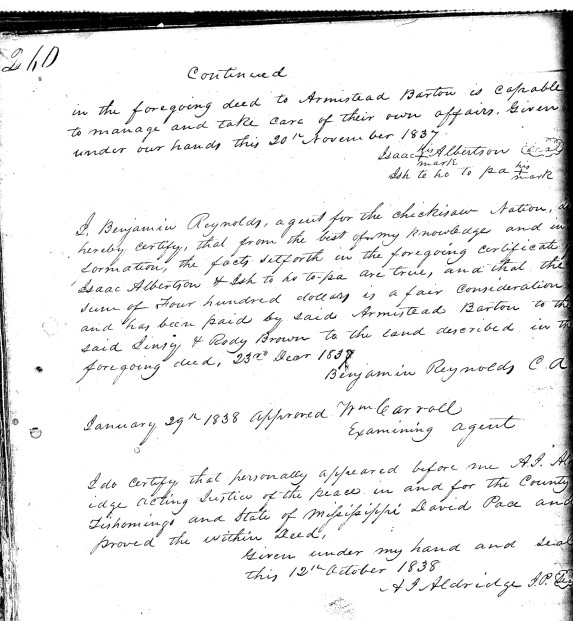 260
Continued
in the foregoing deed to Armistead Barton is capable
to manage and take care of their own affairs. Given
under our hands this 20th November 1837
Isaac his mark Albertson (Seal)
Ish to ho to pa his mark
I, Benjamin Reynolds, agent for the chickisaw Nation, d
hereby certify, that from the best of my knowledge and in
formation, the facts setforth in the foregoing certificate
Isaac Albertson & Ish to ho to-pa are true, and that the
sum of Four hundred dollars is a fair consideration
and has been paid by said Armistead Barton to the
said Linsy & Rody Brown to the land described in th
foregoing deed, 23rd Decr 1837
Benjamin Reynolds C. A
January 29th 1838 approved Wm Carroll
Examining agent
I do certify that personally appeared before me A. J. Al
idge acting Justice of the peace in and for the County
Tishomingo and State of Mississippi David Pace and
proved the within Deed,
Given under my hand and seal
this 12th October 1838
A J Aldridge J.P.